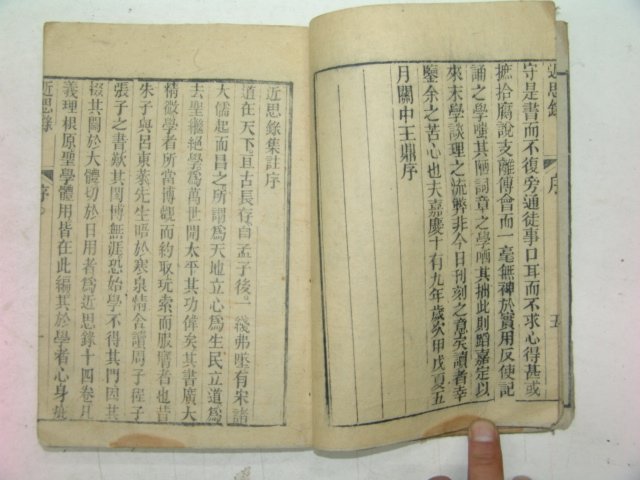 近思錄 序 五
守是書而不復旁通徒事口耳而不求心得甚或
摭拾腐說支離傅會而一毫無裨於實用反使記
誦之學嗤其陋詞章之學哂其拙此則踵嘉定以
來末學談理之流弊非今日刊刻之意矣讀者幸
鑒余之苦心也夫嘉慶十有九年歲次甲戌夏五
月關中王鼎序
近思錄集註序
道在天下亘古長存自孟子後一綫弗墜有宋諸
大儒起而昌之所謂爲天地立心爲生民立道爲
去聖繼絕學爲萬世開太平其功偉矣其書廣大
精微學者所當博觀而約取玩索而服膺者也昔
朱子與呂東萊先生晤於寒泉精舍讀周子程子
張子之書歎其閎博無涯恐始學不得其門因共
掇其關於大體切於日用者爲近思錄十四卷凡
義理根原聖學體用皆在此編其於學者心身疵
近思錄 序